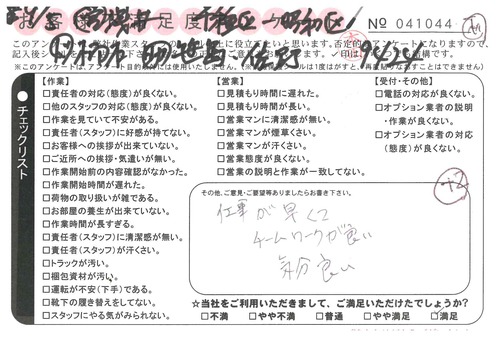 お客様満足度
№ 041044
このアンケートは
【作業】
□責任者の対応(態度)が良くない。
□他のスタッフの対応(態度)が良くない。
□作業を見ていて不安がある。
□責任者(スタッフ)に好感が持てない。
□お客様への挨拶が出来ていない。
□ご近所への挨拶・気遣いが無い。
□作業開始前の内容確認がなかった。
□作業開始時間が遅れた。
□荷物の取り扱いが雑である。
□お部屋の養生が出来ていない。
□作業時間が長すぎる。
□責任者(スタッフ)に清潔感が無い。
□責任者(スタッフ)が汗くさい。
□トラックが汚い。
□梱包資材が汚い。
□運転が不安(下手)である。
□靴下の履き替えをしてない。
□スタッフにやる気がみられない。
【営業】
□見積もり時間に遅れた。
□見積もり時間が長い。
□営業マンに清潔感が無い。
□営業マンが煙草くさい。
□営業マンが汗くさい。
□営業態度が良くない。
□営業の説明と作業が一致してない。
【受付・その他】
□電話の対応が良くない。
□オプション業者の説明
・作業が良くない。
□オプション業者の対応
(態度)が良くない。
チェックリスト
その他、ご意見・ご要望等ありましたらお書き下さい。
仕事が早くて
チームワークが良い
気分良い
+2
☆当社をご利用いただきまして、ご満足いただけたでしょうか?
□不満 □やや不満 □普通 □やや満足 □満足